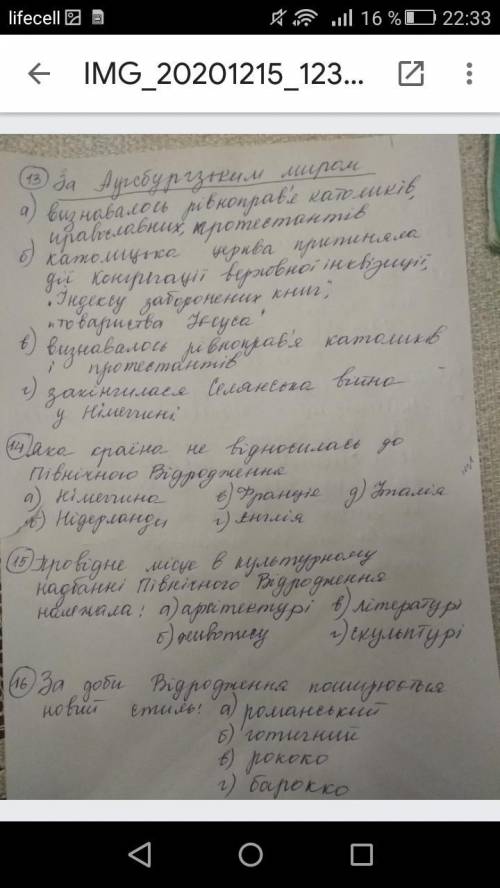 lifecell 16 % 22:33
IMG_20201215_123...
13 За Аугсбурзським миром
а) визнавалось рівноправ'я католиків,
православних, протестантів
б) католицька церква припиняла
дії Конгрегації верховної інквізиції,
"Індексу заборонених книг",
"товариства Ісуса"
в) визнавалось рівноправ'я католиків
і протестантів
г) закінчилася Селянська війна
у Німеччині
14 Яка країна не відносилась до
Північного Відродження
а) Німеччина в) Франція д) Італія
б) Нідерланди г) Англія
15 Провідне місце в культурному
надбанні Північного Відродження
належала: а) архітектурі в) літературі
б) живопису г) скульптурі
16 За доби Відродження поширюється
новий стиль: а) романський
б) готичний
в) рококо
г) барокко